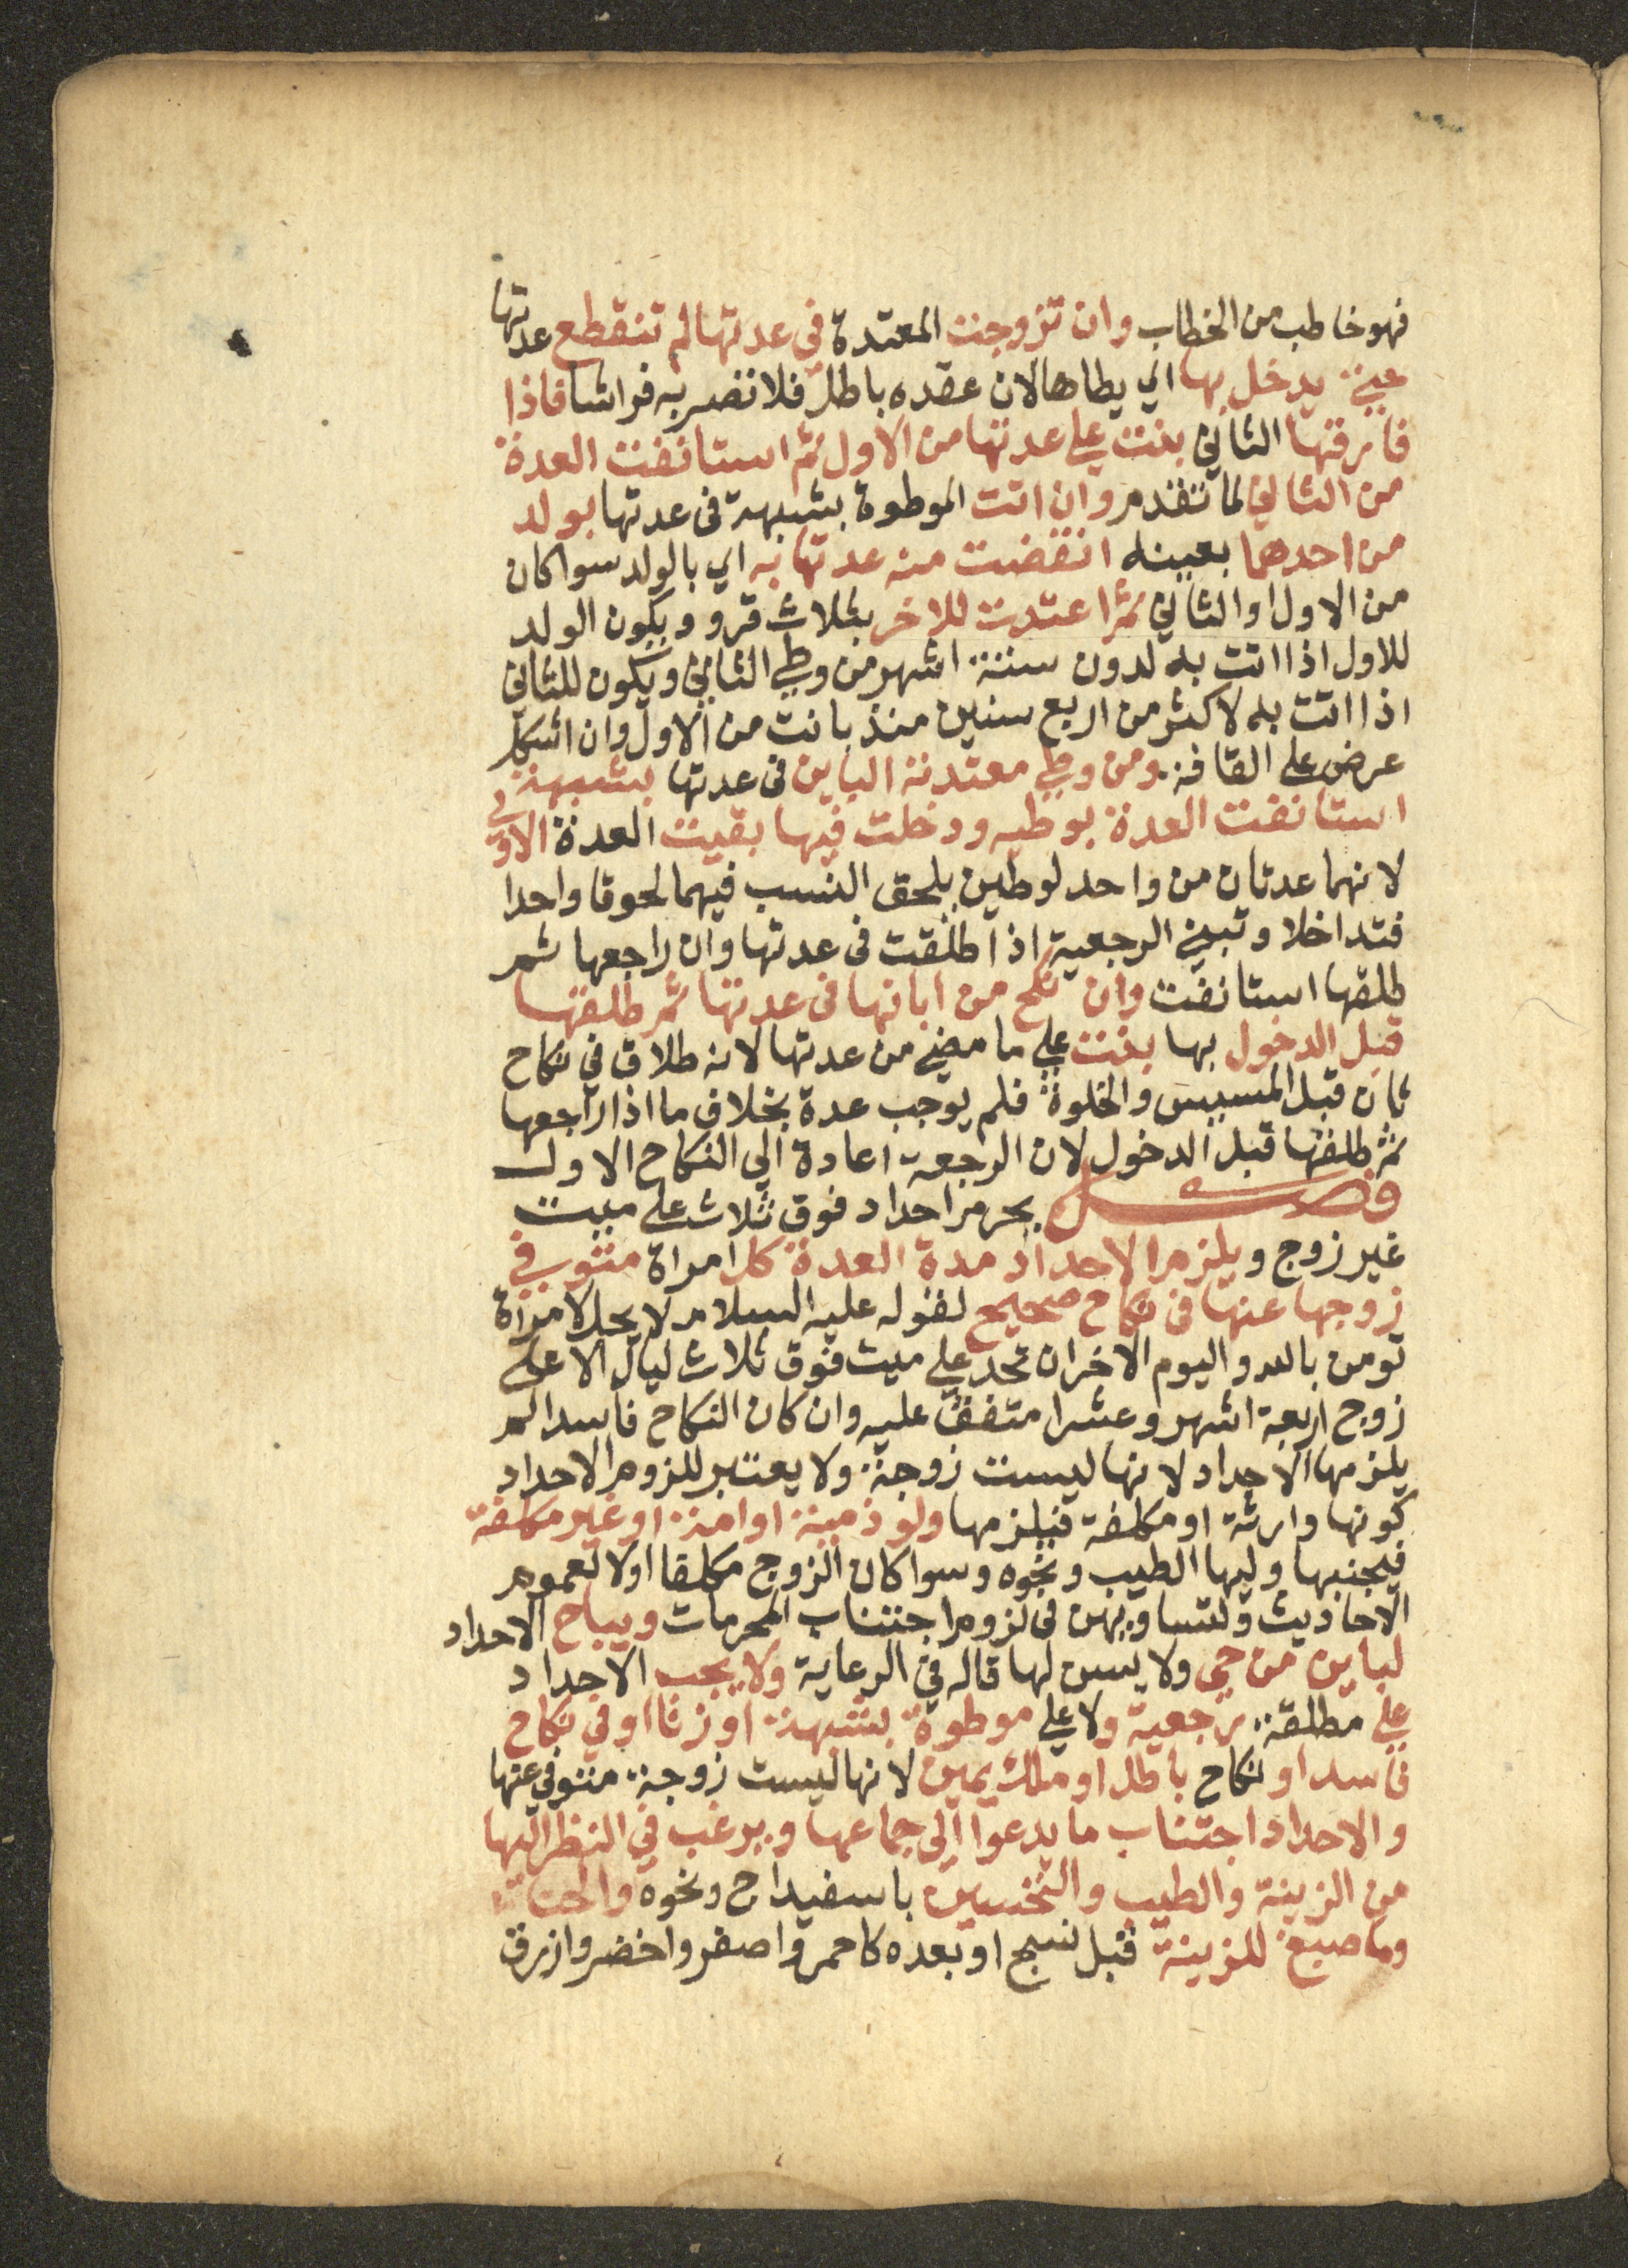 فهو خاطب من الخطاب وان تزوجت المعتدة في عدتها لم تنقطع عدتها
حتى يدخل بها اي يطاها لان عقده باطل فلا تصير به فراشا فاذا
فارقها الثاني بنت على عدتها من الاول ثم استانفت العدة
من الثاني لما تقدم وان اتت الموطوة بشبهة في عدتها بولد
من احدهما بعينه انقضت منه عدتها به اي بالولد سوا كان
من الاول او الثاني ثم اعتدت للاخر بثلاث قرو ويكون الولد
للاول اذا اتت به لدون ستة اشهر من وطي الثاني ويكون للثاني
اذا اتت به لاكثر من اربع سنين منذ بانت من الاول وان اشكل
عرض على القافة ومن وطي معتدته الباين في عدتها بشبهة
استانفت العدة بوطيه ودخلت فيها بقيت العدة الاولى
لانهما عدتان من واحد لوطين يلحق النسب فيهما لحوقا واحدا
فتداخلا وتبني الرجعية اذا طلقت في عدتها وان راجعها ثم
طلقها استانفت وان نكح من ابانها في عدتها ثم طلقها
قبل الدخول بها بنت على ما مضى من عدتها لانه طلاق في نكاح
ثان قبل المسيس والخلوة فلم يوجب عدة بخلاف ما اذا راجعها
ثم طلقها قبل الدخول لان الرجعة اعادة الى النكاح الاول
فصل يحرم احداد فوق ثلاث على ميت
غير زوج ويلزم الاحداد مدة العدة كل امراة متوفى
زوجها عنها في نكاح صحيح لقوله عليه السلام لا يحل لامراة
تومن بالله واليوم الاخر ان تحد على ميت فوق ثلاث ليال الا على
زوج اربعة اشهر وعشرا متفق عليه وان كان النكاح فاسدا لم
يلزمها الاحداد لانها ليست زوجة ولا يعتبر للزوم الاحداد
كونها وارثة او مكلفة فيلزمها ولو ذمية او امة او غير مكلفة
فيجنبها وليها الطيب ونحوه وسوا كان الزوج مكلفا اولا لعموم
الاحاديث ولتساويهن في لزوم اجتناب المحرمات ويباح الاحداد
لباين من حي ولا يسن لها قاله في الرعاية ولا يجب الاحداد
على مطلقة رجعية ولا على موطوة بشبهة او زنا او في نكاح
فاسد او نكاح باطل او ملك يمين لانها ليست زوجة متوفى عنها
والاحداد اجتناب ما يدعوا الى جماعها ويرغب في النظر اليها
من الزينة والطيب والتحسين باسفيداج ونحوه والحنا
وما صبغ للزينة قبل نسج او بعده كاحمر واصفر واخضر وازرق